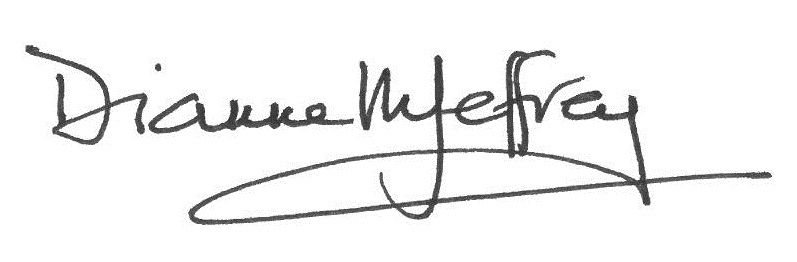 Dianne M Jeffrey